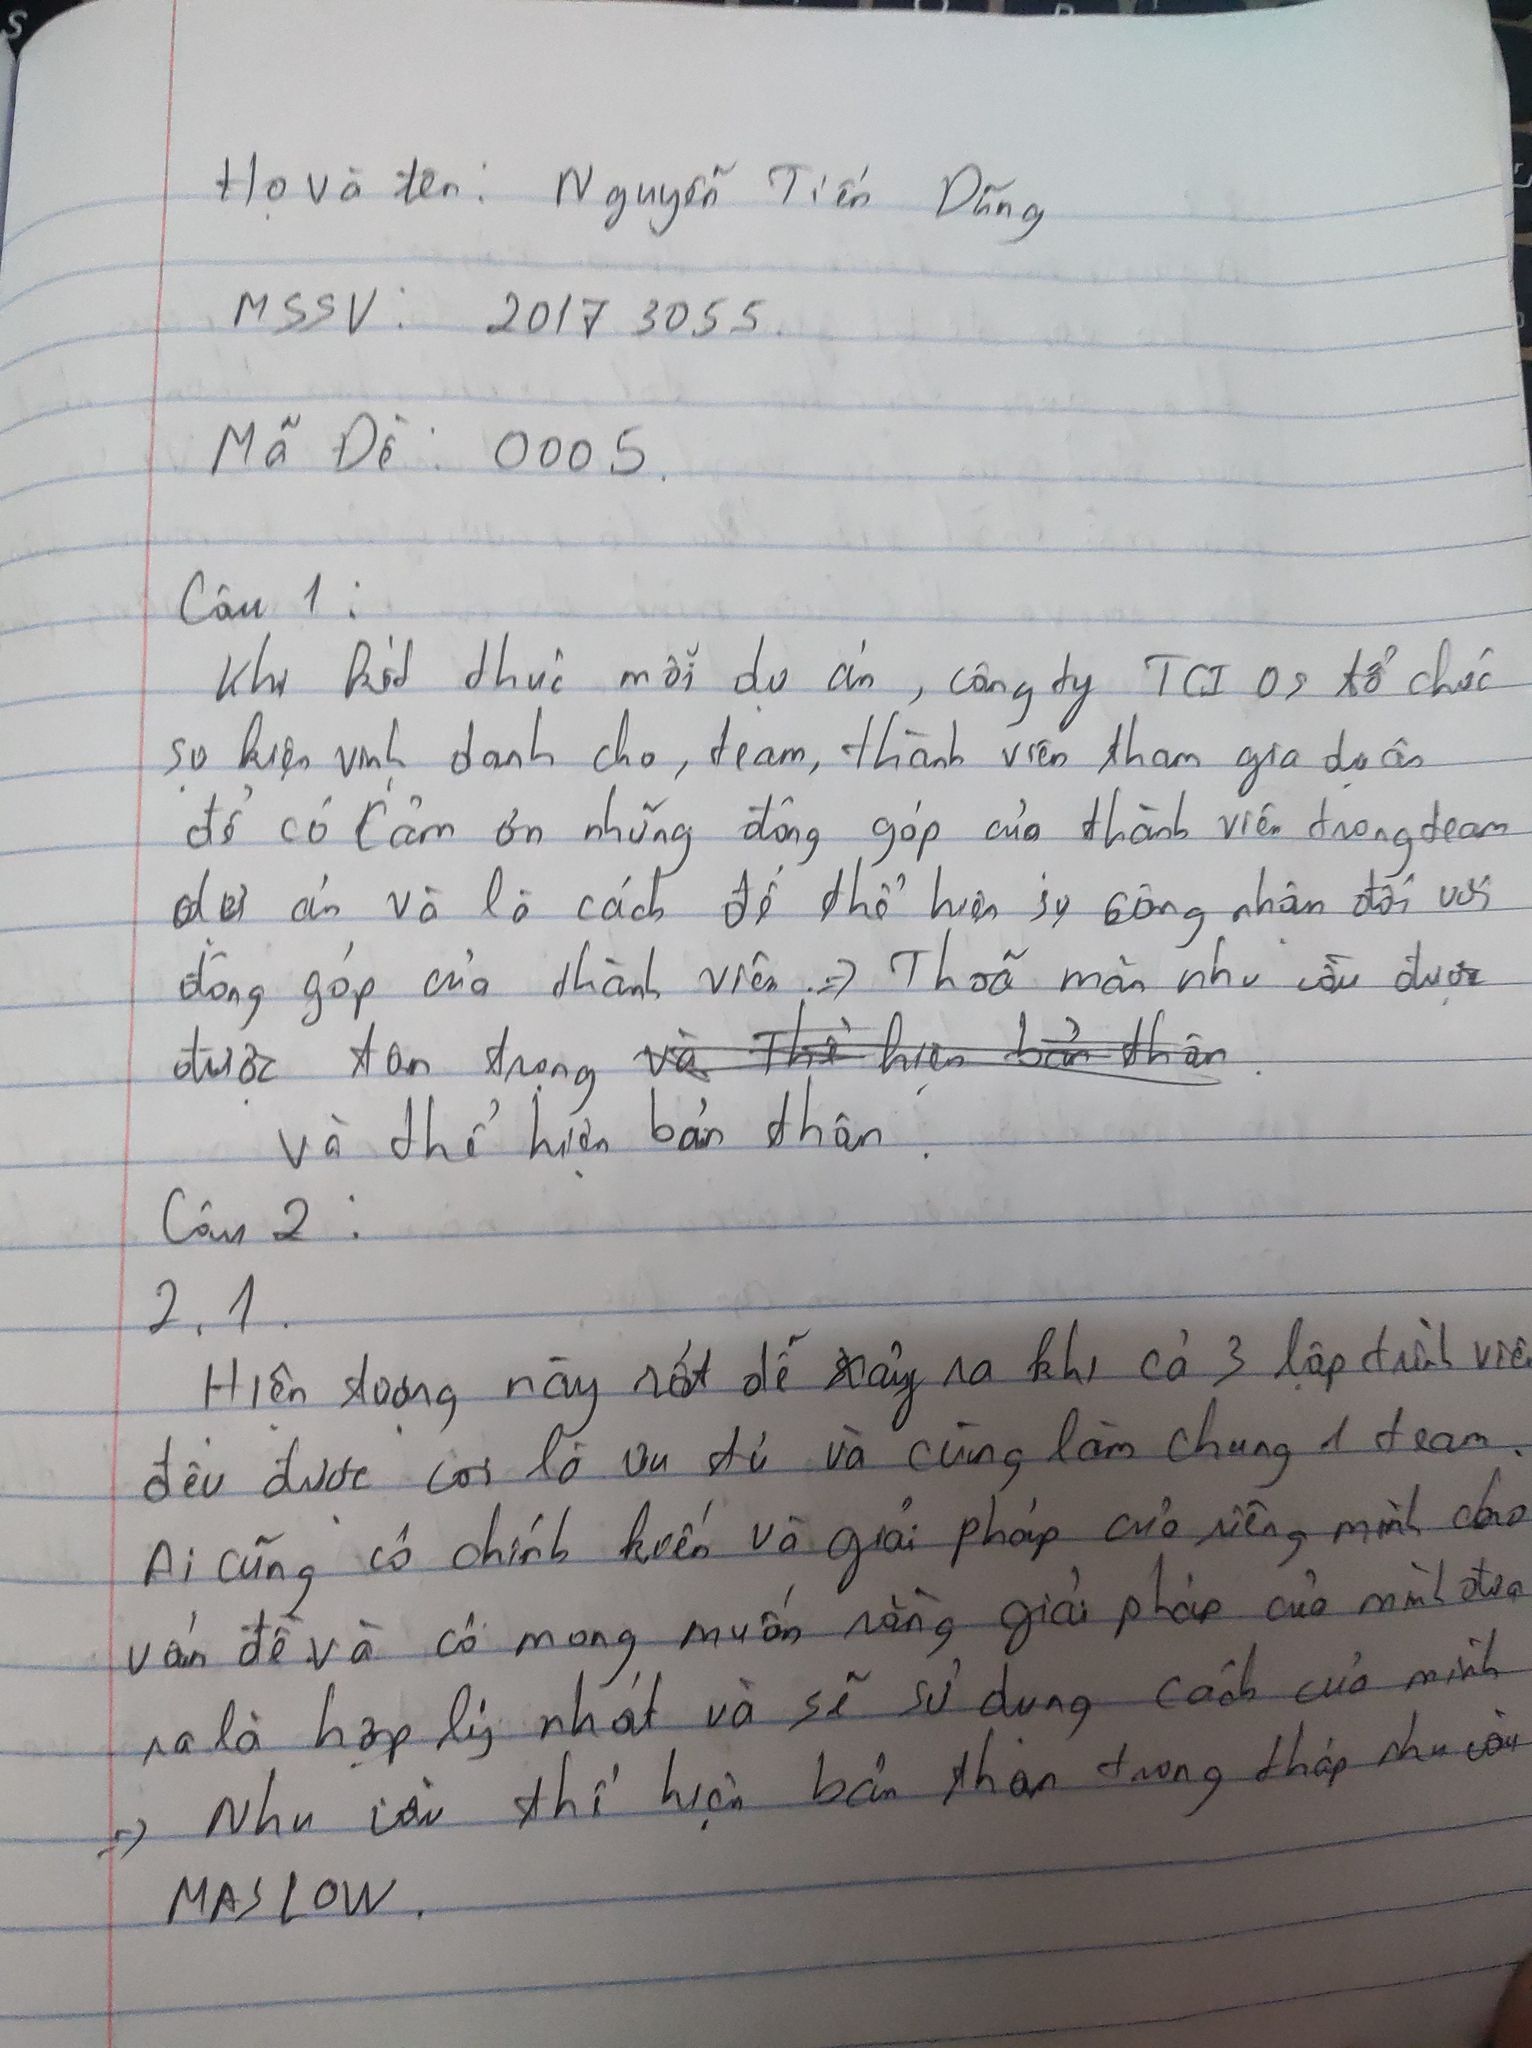 Họ và tên: Nguyễn Tiến Dũng
MSSV: 2017 3055.
Mã Đề: 0005.
Câu 1:
Khi kết thúc mỗi dự án, công ty TCI OS tổ chức
sự kiện vinh danh cho, team, thành viên tham gia dự án
để có cảm ơn những đóng góp của thành viên trong team
dự án và là cách để thể hiện sự công nhận đối với
đóng góp của thành viên. => Thoã mãn nhu cầu được
được tôn trọng và Thể hiện bản thân.
và thể hiện bản thân.
Câu 2:
2.1.
Hiện tượng này rất dễ xảy ra khi cả 3 lập trình viên
đều được coi là ưu tú và cùng làm chung 1 team.
Ai cũng có chính kiến và giải pháp của riêng mình cho
vấn đề và có mong muốn rằng giải pháp của mình đưa
ra là hợp lý nhất và sẽ sử dụng cách của mình
=> Nhu cầu thể hiện bản thân trong tháp nhu cầu
MASLOW.